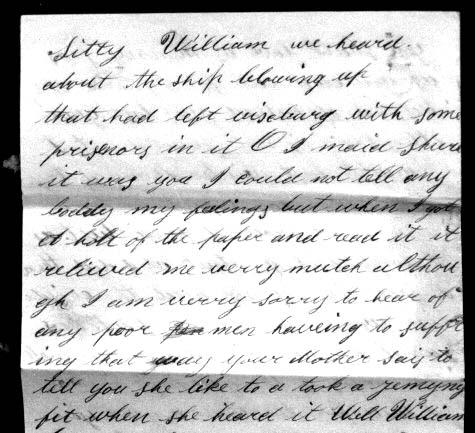 Sitty William we heard
about the ship blowing up
that had left wisburg with some
prisenors in it O I maid shure
it was you I could not tell any
boddy my fealings but when I got
a holt of the paper and read it it
relieved me verry mutch althou
gh I am verry sorry to hear of
any poor men haveing to suffr
ing that way your Mother say to
tell you she like to a took a
fit when she heard it Well William